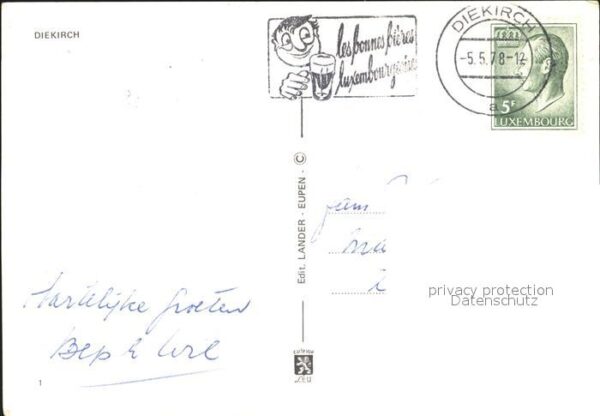 DIEKIRCH
les bonnes bières
luxembourgeoises
DIEKIRCH
-5.5.78-12
a
5F
LUXEMBOURG
Edit. LANDER - EUPEN - ©
fam
privacy protection
Datenschutz
Hartelijke groeten
Bep &
1